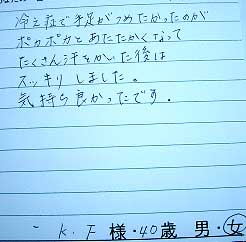 冷え症で手足がつめたかったのが
ポカポカとあたたかくなって
たくさん汗をかいた後は
スッキリしました。
気持ち良かったです。
K.F 様・40歳 男・女